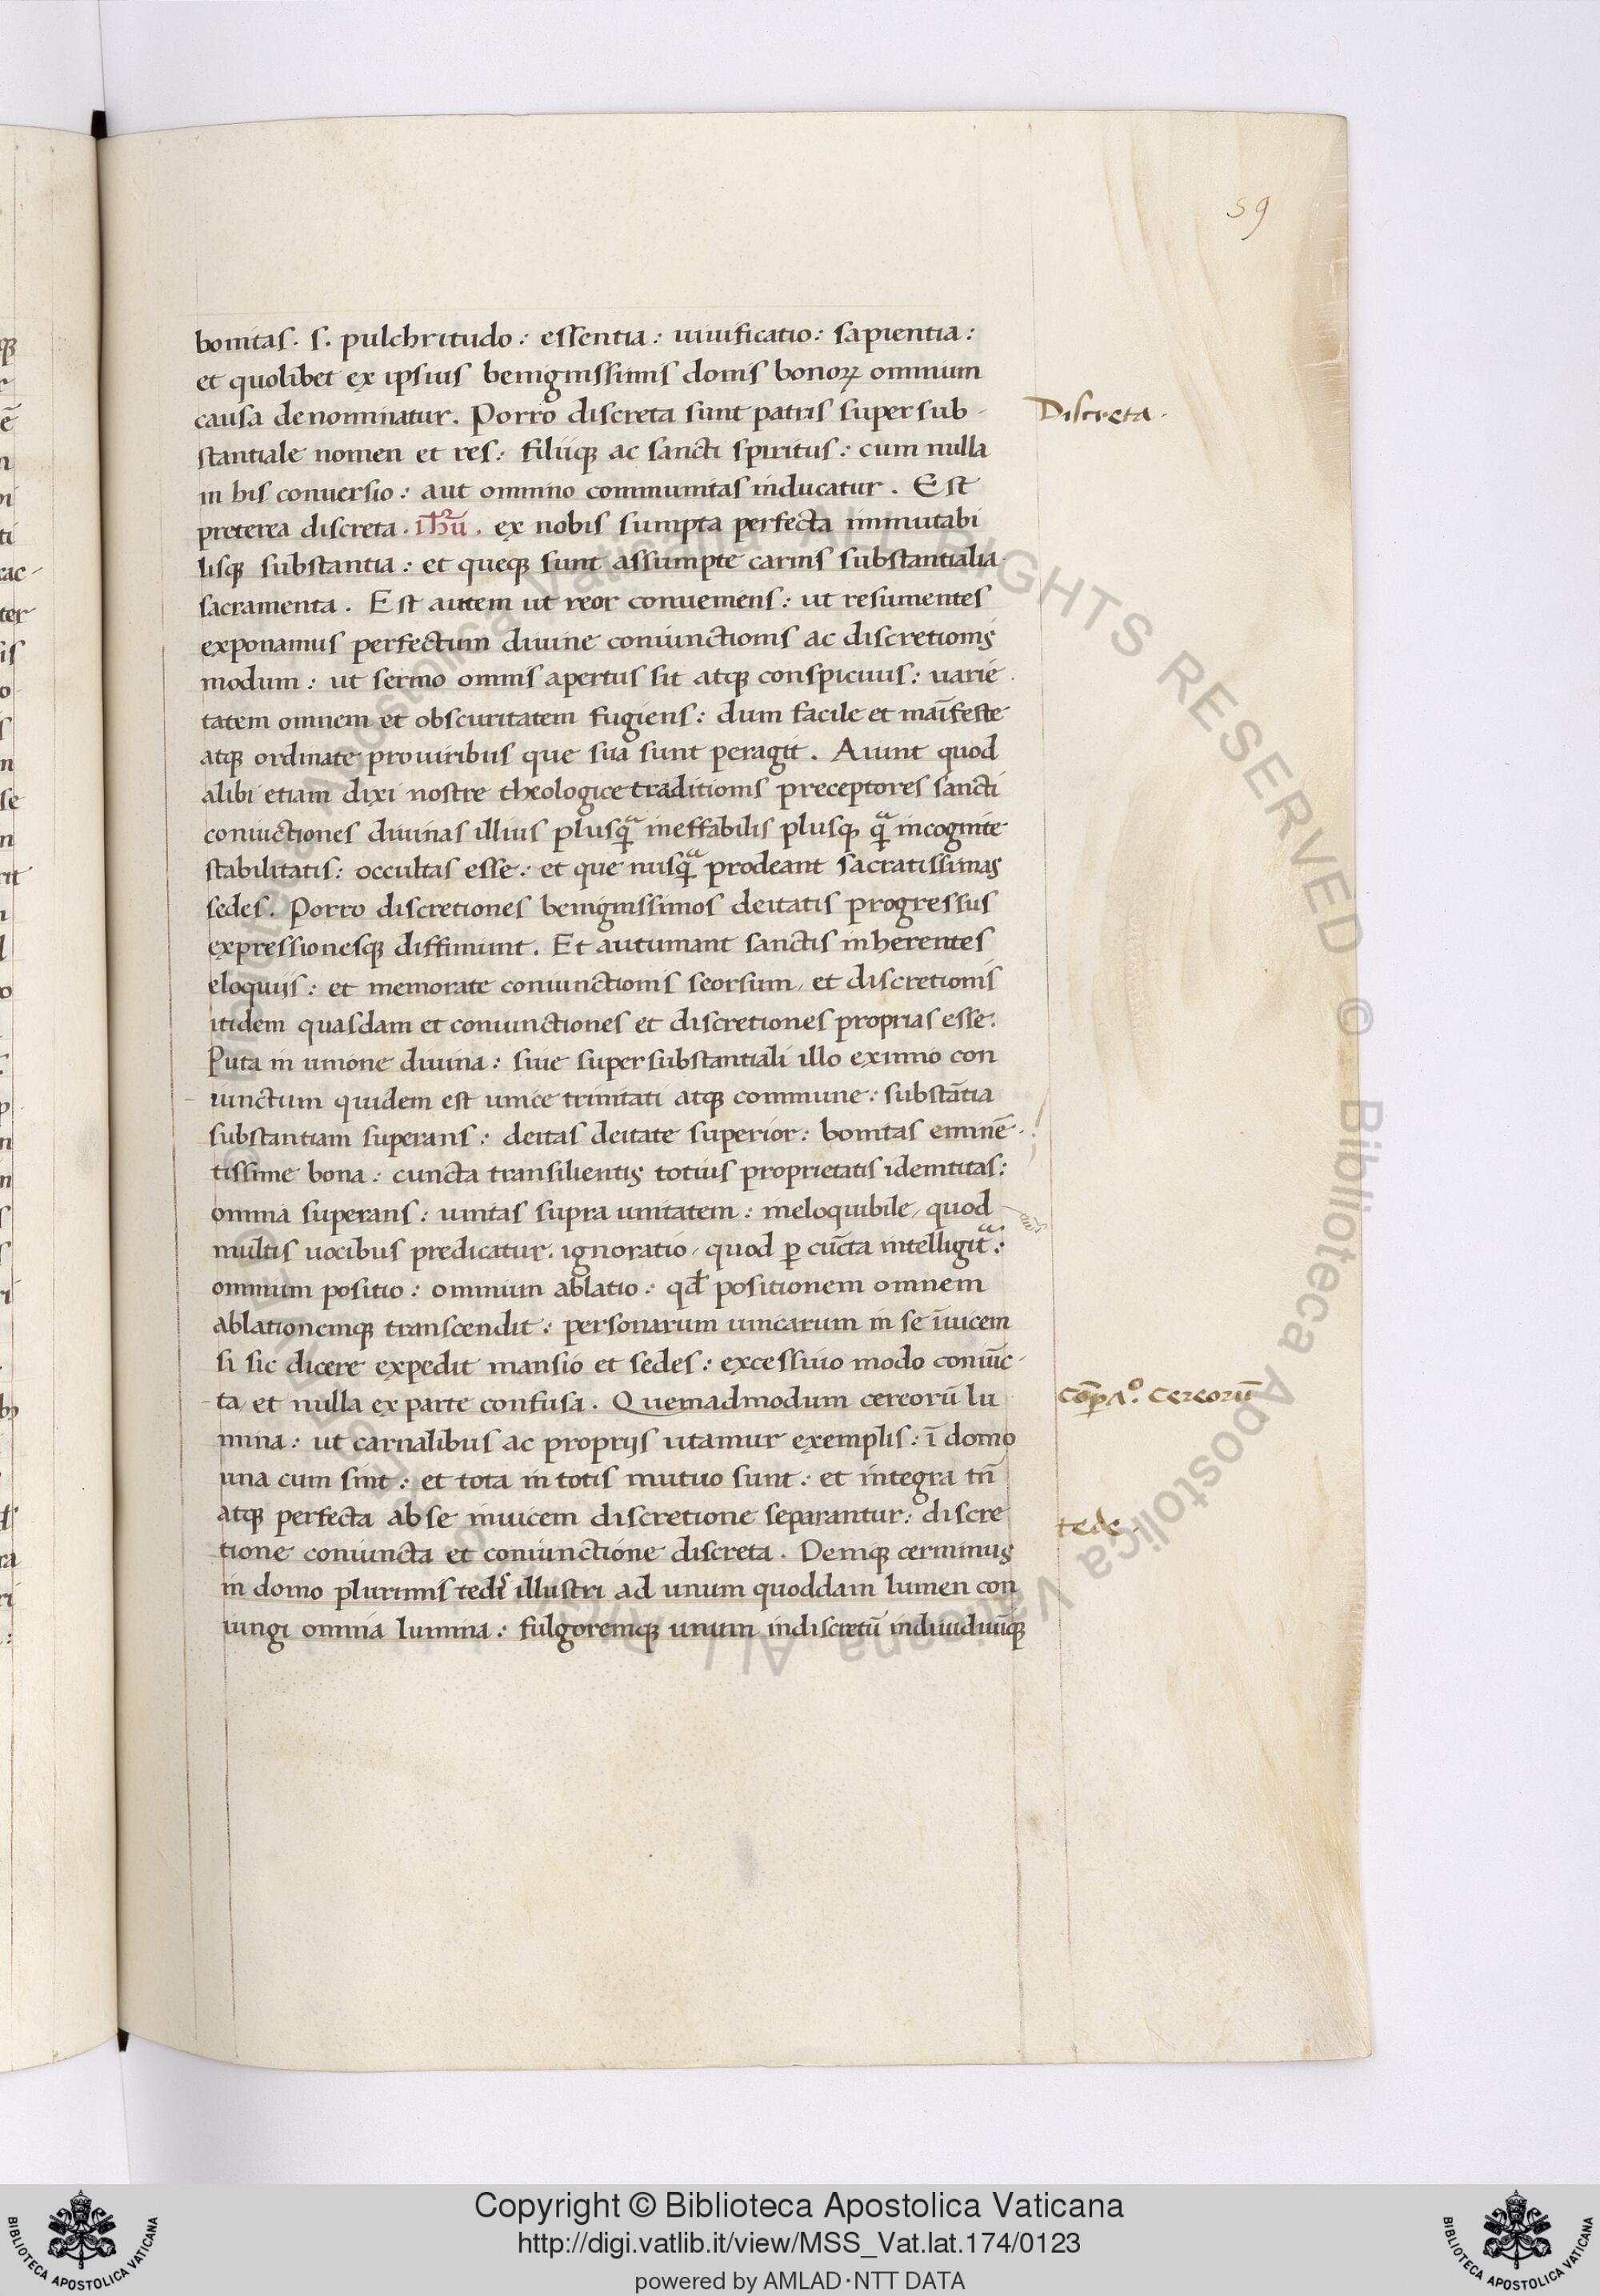 59
bonitas. s. pulchritudo: essentia: uiuificatio: sapientia:
et quolibet ex ipsius benignissimis donis bonoꝝ omnium
causa denominatur. Porro discreta sunt patris supersub-
Discreta.
stantiale nomen et res: filiiqꝫ ac sancti spiritus: cum nulla
in his conuersio: aut omnino communitas inducatur. Est
preterea discreta. ihū. ex nobis sumpta perfecta immutabi
lisqꝫ substantia: et queqꝫ sunt assumpte carnis substantialia
sacramenta. Est autem ut reor conueniens: ut resumentes
exponamus perfectum diuine coniunctionis ac discretionis
modum: ut sermo omnis apertus sit atqꝫ conspicuus: uarie
tatem omnem et obscuritatem fugiens: dum facile et maīfeste
atqꝫ ordinate prouiribus que sua sunt peragit. Aiunt quod
alibi etiam dixi nostre theologice traditionis preceptores sancti
coniuctiones diuinas illius plusqᷓ ineffabilis plusqꝫ qᷓ incognite
stabilitatis: occultas esse: et que nusqᷓ prodeant sacratissimas
sedes. Porro discretiones benignissimos deitatis progressus
expressionesqꝫ diffiniunt. Et autumant sanctis inherentes
eloquijs: et memorate coniunctionis seorsum, et discretionis
itidem quasdam et coniunctiones et discretiones proprias esse.
Puta in unione diuina: siue supersubstantiali illo eximio con
iunctum quidem est unice trinitati atqꝫ commune: substātia
substantiam superans: deitas deitate superior: bonitas eminē-
tissime bona: cuncta transilientis totius proprietatis idemtitas:
omnia superans: unitas supra unitatem: ineloquibile, quod
multis uocibus predicatur. ignoratio, quod ꝑ cūcta intelligitᷓ:
omnium positio: omnium ablatio: qđ positionem omnem
ablationemqꝫ transcendit: personarum unicarum in se īuicem
si sic dicere expedit mansio et sedes: excessiuo modo coniūc-
ta, et nulla ex parte confusa. Quemadmodum cereorū lu
cōpaº. cereorū
mina: ut carnalibus ac proprijs utamur exemplis: ī domo
una cum sint: et tota in totis mutuo sunt: et integra tn̄
atqꝫ perfecta ab se inuicem discretione separantur: discre
tede.
tione coniuncta et coniunctione discreta. Deniqꝫ cernimus
in domo plurimis tedis illustri ad unum quoddam lumen con
iungi omnia lumina: fulgoremqꝫ unum indiscretū indiuiduūqꝫ
Copyright © Biblioteca Apostolica Vaticana
http://digi.vatlib.it/view/MSS_Vat.lat.174/0123
powered by AMLAD·NTT DATA
BIBLIOTECA APOSTOLICA VATICANA
BIBLIOTECA APOSTOLICA VATICANA